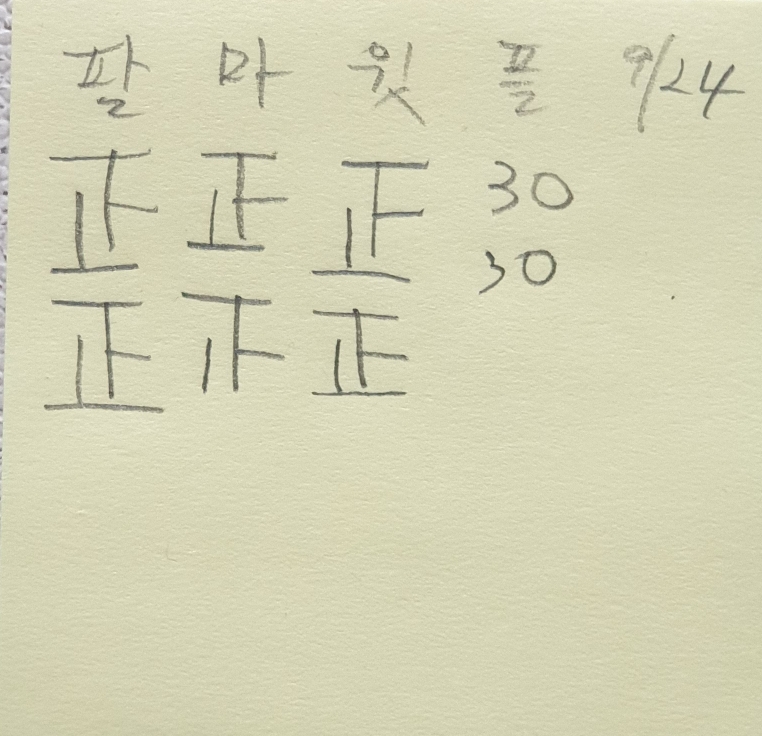 팔 마 윗 플 9/24
正 正 正 30
30
正 正 正